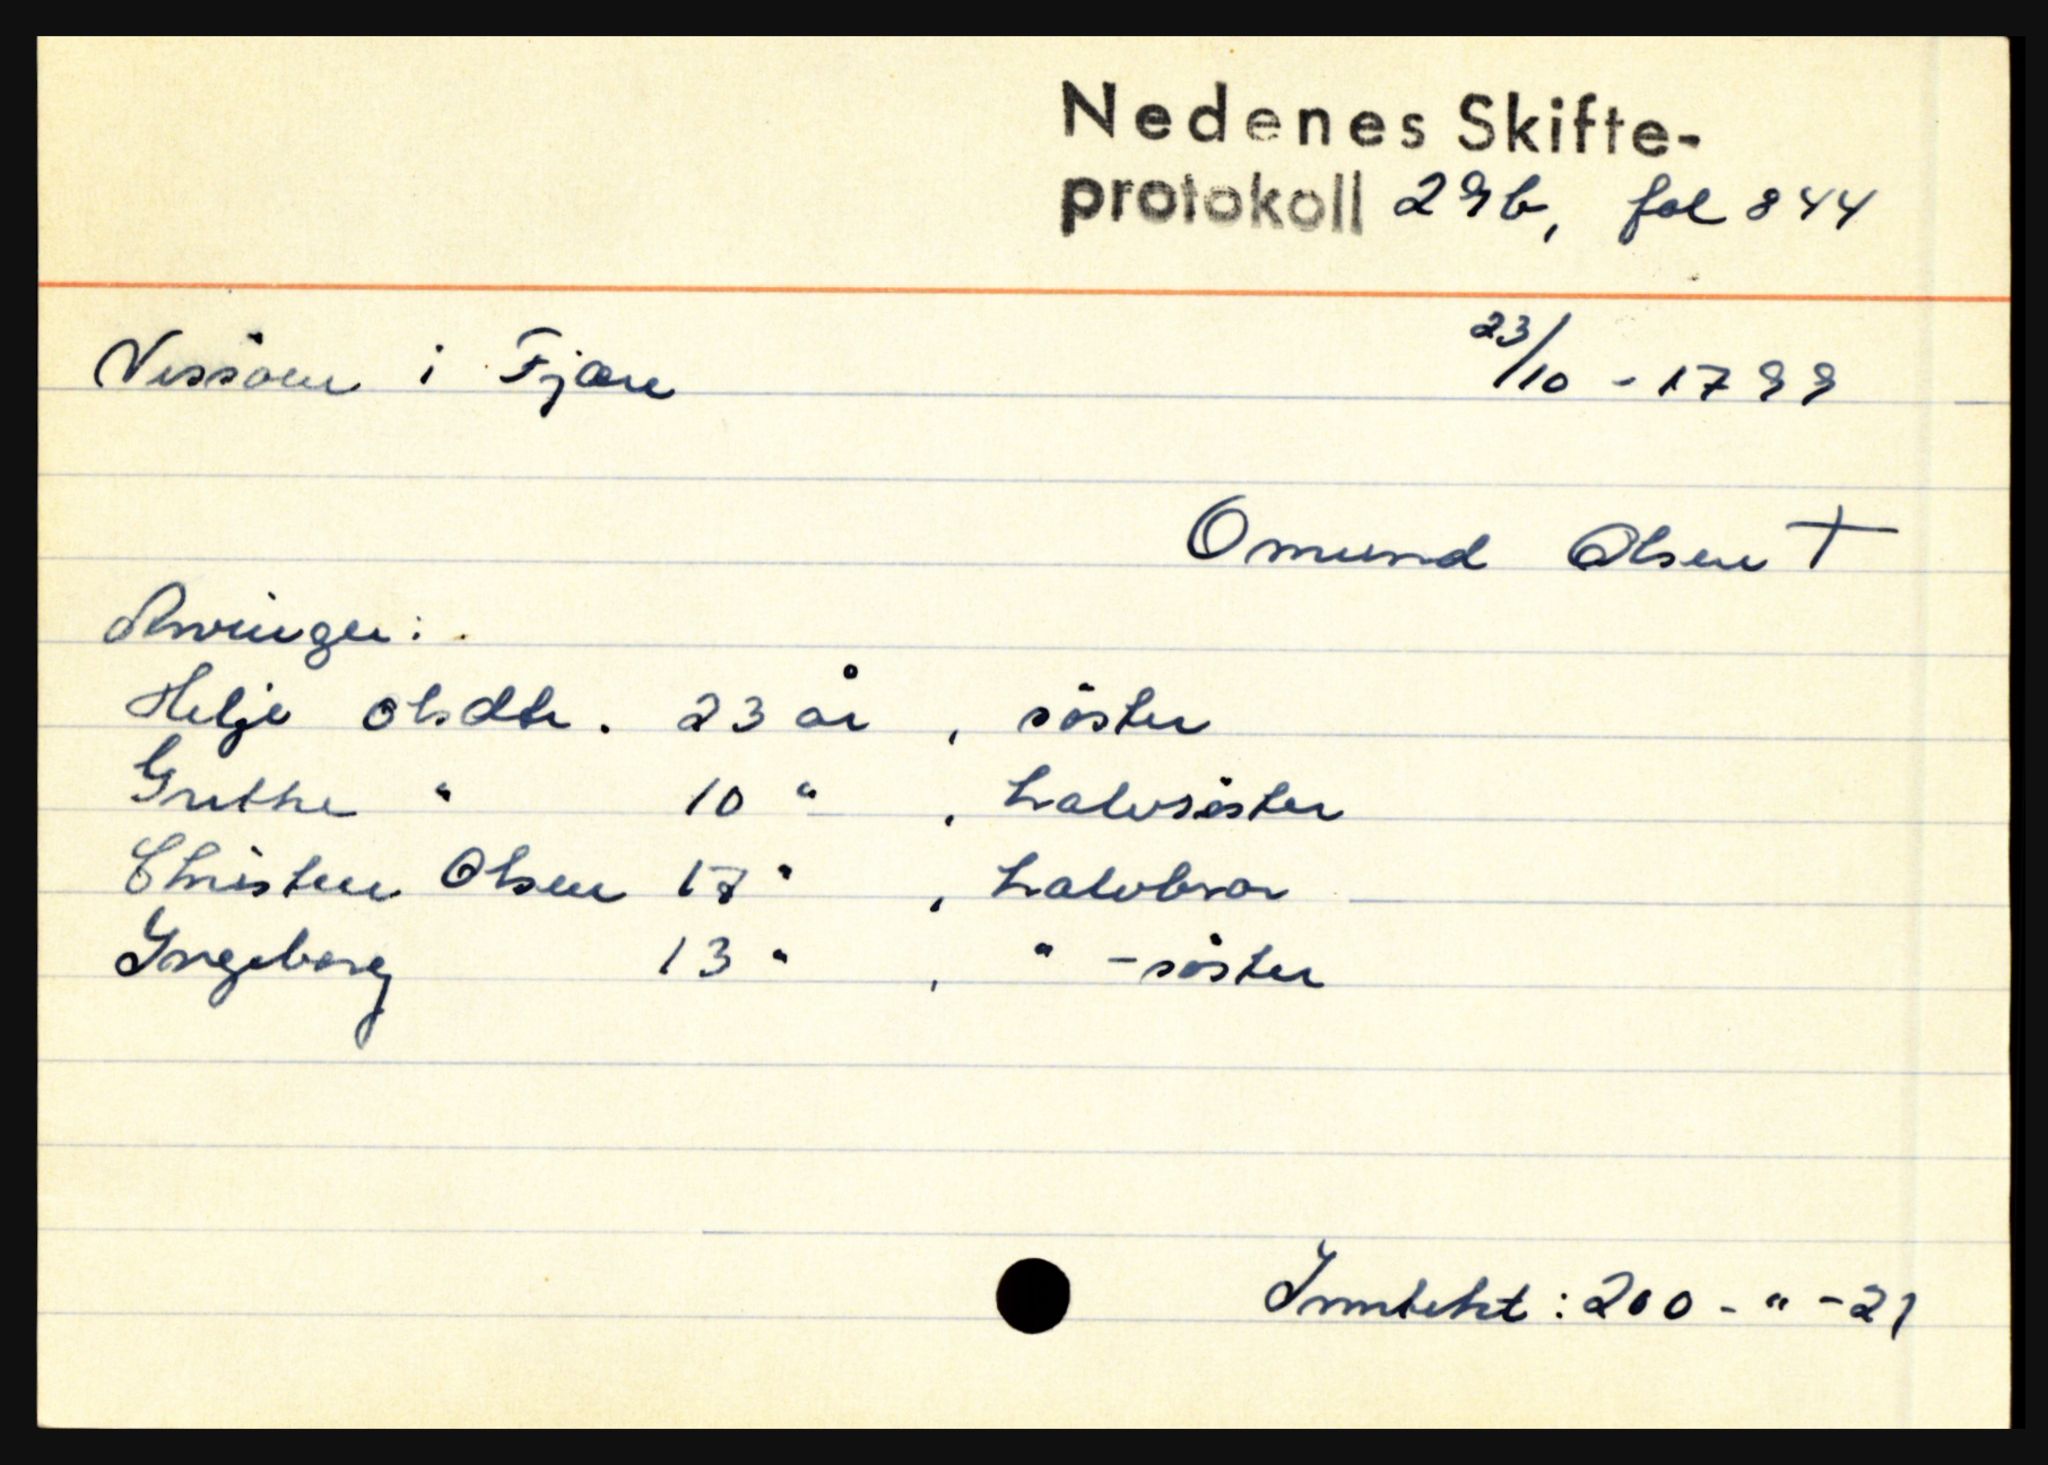 Nedenes Skifte-
protokoll 29b, fol 844
Vessöen i Fjære 23/10 - 1799
Omund Olsen †
Arvinger:
Helje Olsdtr. 23 år, söster
Grethe " 10 ", halvsöster
Christen Olsen 17 ", halvbror
Ingeborg 13 ", " - söster
Inntekt: 200 - " - 21